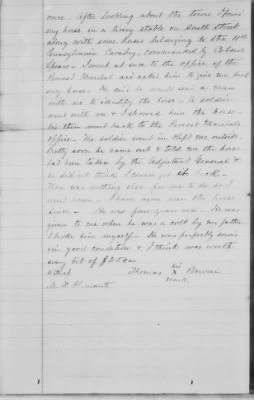 once. After looking about the town I found
my horse in a livery stable on South Street
along with some horses belonging to the 11th
Pennsylvania Cavalry, commanded by Colonel
Spear. I went at once to the Office of the
Provost Marshal and asked him to give me back
my horse. He said he would send a man
with me to identify the horse. A soldier
went with me & I showed him the horse
We then went back to the Provost Marshals
Office. The soldier went in & left me outside.
Pretty soon he came out & told me the horse
had been taken by the Adjutant General &
he did not think I could get it back.
There was nothing else for me to do so I
went home. I have never seen the horse
since. He was four years old. He was
given to me when he was a colt by my father.
I broke him myself. He was perfectly sound
in good condition & I think was worth
every bit of $250.
his
Thomas X
mark